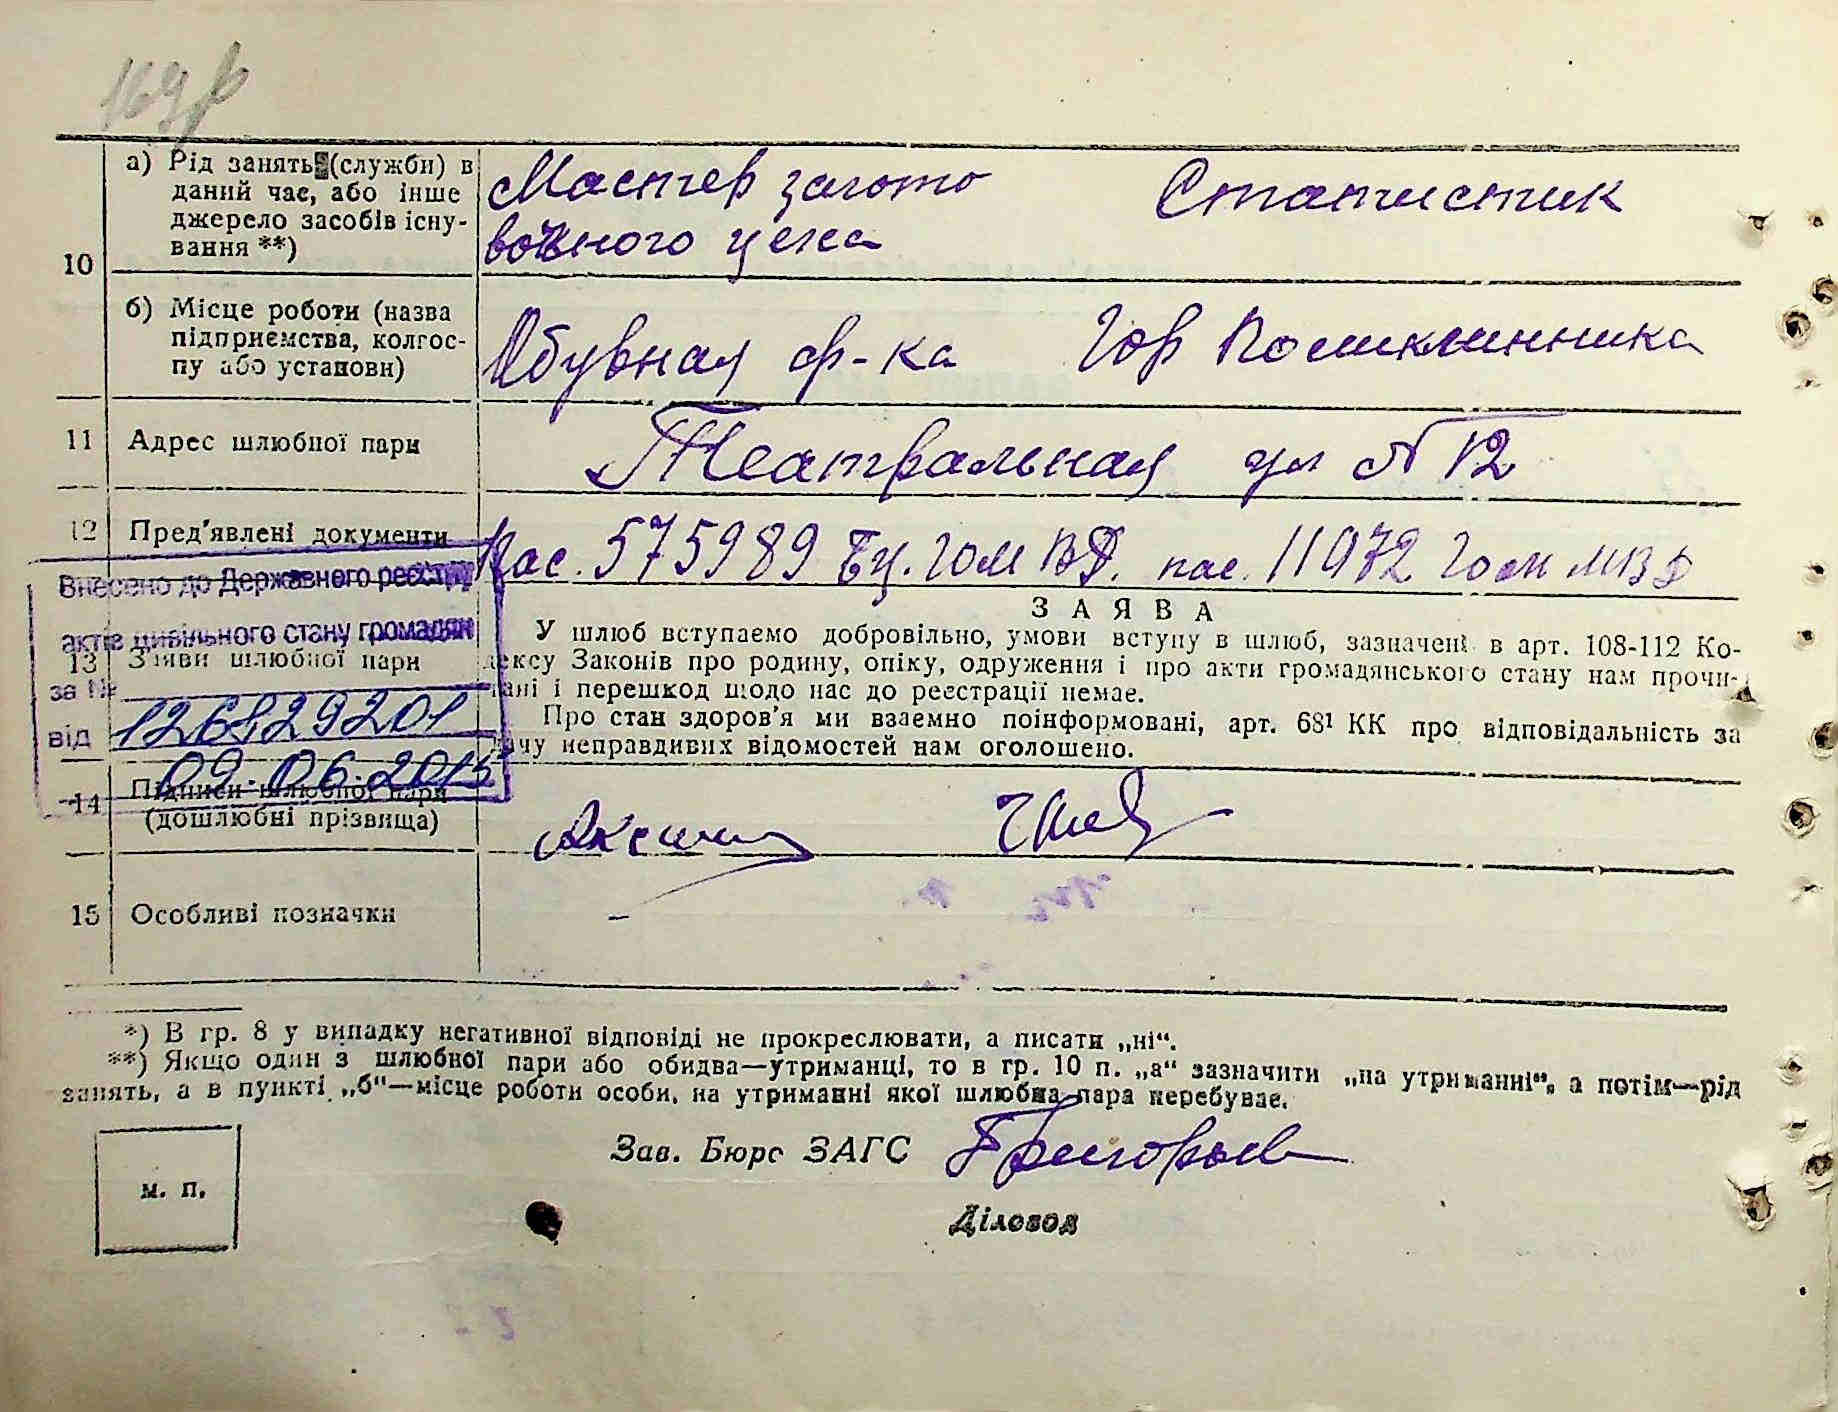 169
10
а) Рід занять (служби) в
даний час, або інше
джерело засобів існу-
вання **)
Мастер загото
вочного цеха
Статистик
б) Місце роботи (назва
підприємства, колгос-
пу або установи)
Обувная ф-ка
Гор Поликлинника
11
Адрес шлюбної пари
Театральная ул № 12
12
Пред'явлені документи
Пас. 575989 Гом пас. 11972 Гом МВД
Внесено до Державного реєстру
актів цивільного стану громадян
за №
від
126829201
09.06.2015
13
Заяви шлюбної пари
ЗАЯВА
У шлюб вступаємо добровільно, умови вступу в шлюб, зазначені в арт. 108-112 Ко-
дексу Законів про родину, опіку, одруження і про акти громадянського стану нам прочи-
тані і перешкод щодо нас до реєстрації немає.
Про стан здоров'я ми взаємно поінформовані, арт. 68¹ КК про відповідальність за
дачу неправдивих відомостей нам оголошено.
14
Підписи шлюбної пари
(дошлюбні прізвища)
15
Особливі позначки
—
*) В гр. 8 у випадку негативної відповіді не прокреслювати, а писати „ні“.
**) Якщо один з шлюбної пари або обидва—утриманці, то в гр. 10 п. „а“ зазначити „на утриманні“, а потім—рід
занять, а в пункті „б“—місце роботи особи, на утриманні якої шлюбна пара перебуває.
Зав. Бюро ЗАГС Григорьев
м. п.
Діловод